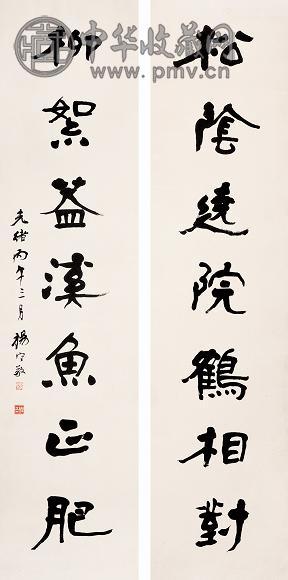 中华收藏网
www.pmv.cn
松陰遶院鶴相對
柳絮葢溪魚正肥
光緒丙午三月 楊守敬